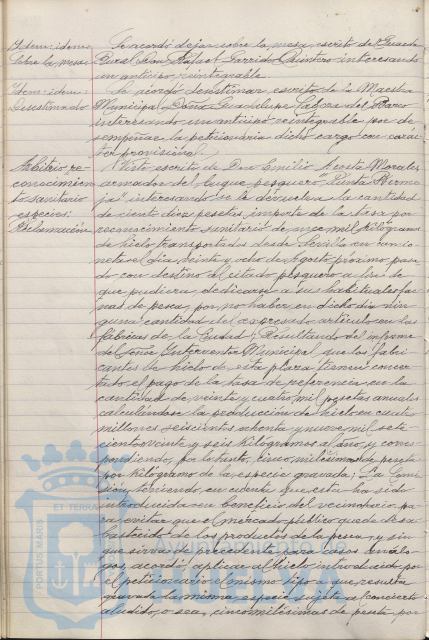 Idem: idem
Sobre la mesa
Se acordó dejar sobre la mesa, escrito del Guarda
Rural Don Rafael Garrido Quintero interesando
un anticipo reintegrable.
Idem: idem:
Desestimado
Se acordó desestimar escrito de la Maestra
Municipal Doña Guadalupe del Barco
interesando un anticipo reintegrable por de
sempeñar la peticionaria dicho cargo con carác
ter provisional.
Arbitrio re-
conocimien
to sanitario
especies:
Reclamación
Visto escrito de Don Emilio Acosta Morales
armador del buque pesquero "Punta Berme
ja" interesando se le devuelva la cantidad
de ciento diez pesetas, importe de la tasa por
reconocimiento sanitario de once mil kilogramos
de hielo transportados desde Sevilla en camio
neta el día veinte y ocho de Agosto próximo pasa
do con destino al citado pesquero a fin de
que pudiera dedicarse a sus habituales fae
nas de pesca, por no haber en dicho día nin
guna cantidad del expresado artículo en las
fábricas de la Ciudad; Resultando del informe
del Señor Interventor Municipal que los fabri
cantes de hielo de esta plaza tienen concer
tado el pago de la tasa de referencia en la
cantidad de veinte y cuatro mil pesetas anuales
calculándose la producción de hielo en cuatro
millones seiscientos ochenta y nueve mil sete
cientos veinte y seis kilogramos al año, y corres
pondiendo, por lo tanto, cinco milésimas de peseta
por kilógramo de la especie gravada; La Comi
sión, teniendo en cuenta que esta ha sido
introducida en beneficio del vecindario, pa
ra evitar que el mercado público quede desa
bastecido de los productos de la pesca, y sin
que sirva de precedente para casos análo
gos, acordó aplicar al hielo introducido por
el peticionario el mismo tipo a que resulta
gravada la misma especie sujeta a concierto
aludido, o sea, cinco milésimas de peseta por
PORTUS MARIS ET TERRA
Ayuntamiento